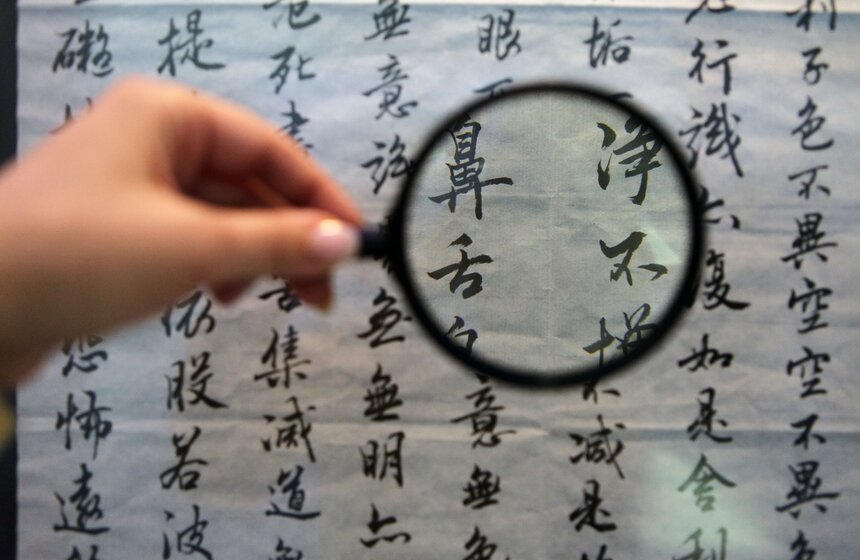 利子色不異空空不異色
行識亦復如是舍利
垢不淨不增不減是
眼耳鼻舌身意無色
無意識無無明亦
死盡苦集滅道無
提依般若波
礙恐怖遠